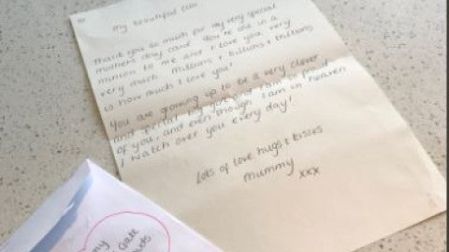 My beautiful
Thank you so much for my very special
mothers day card. You're one in a
million to me and I love you very
very much. Millions & billions & trillions
is how much I love you!
You are growing up to be a very clever
and special big and I am so proud
of you, and even though I am in heaven
I watch over you every day!
Lots of love hugs & kisses
Mummy xxx